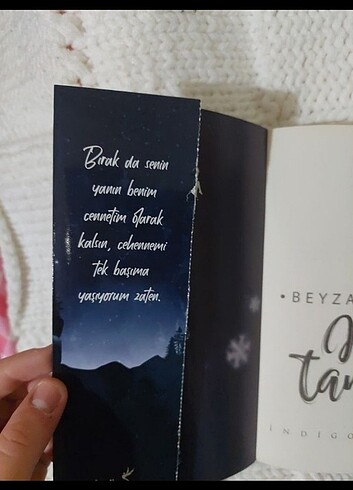 Bırak da senin
yanın benim
cennetim olarak
kalsın, cehennemi
tek başıma
yaşıyorum zaten.
• BEYZA
İNDİGO